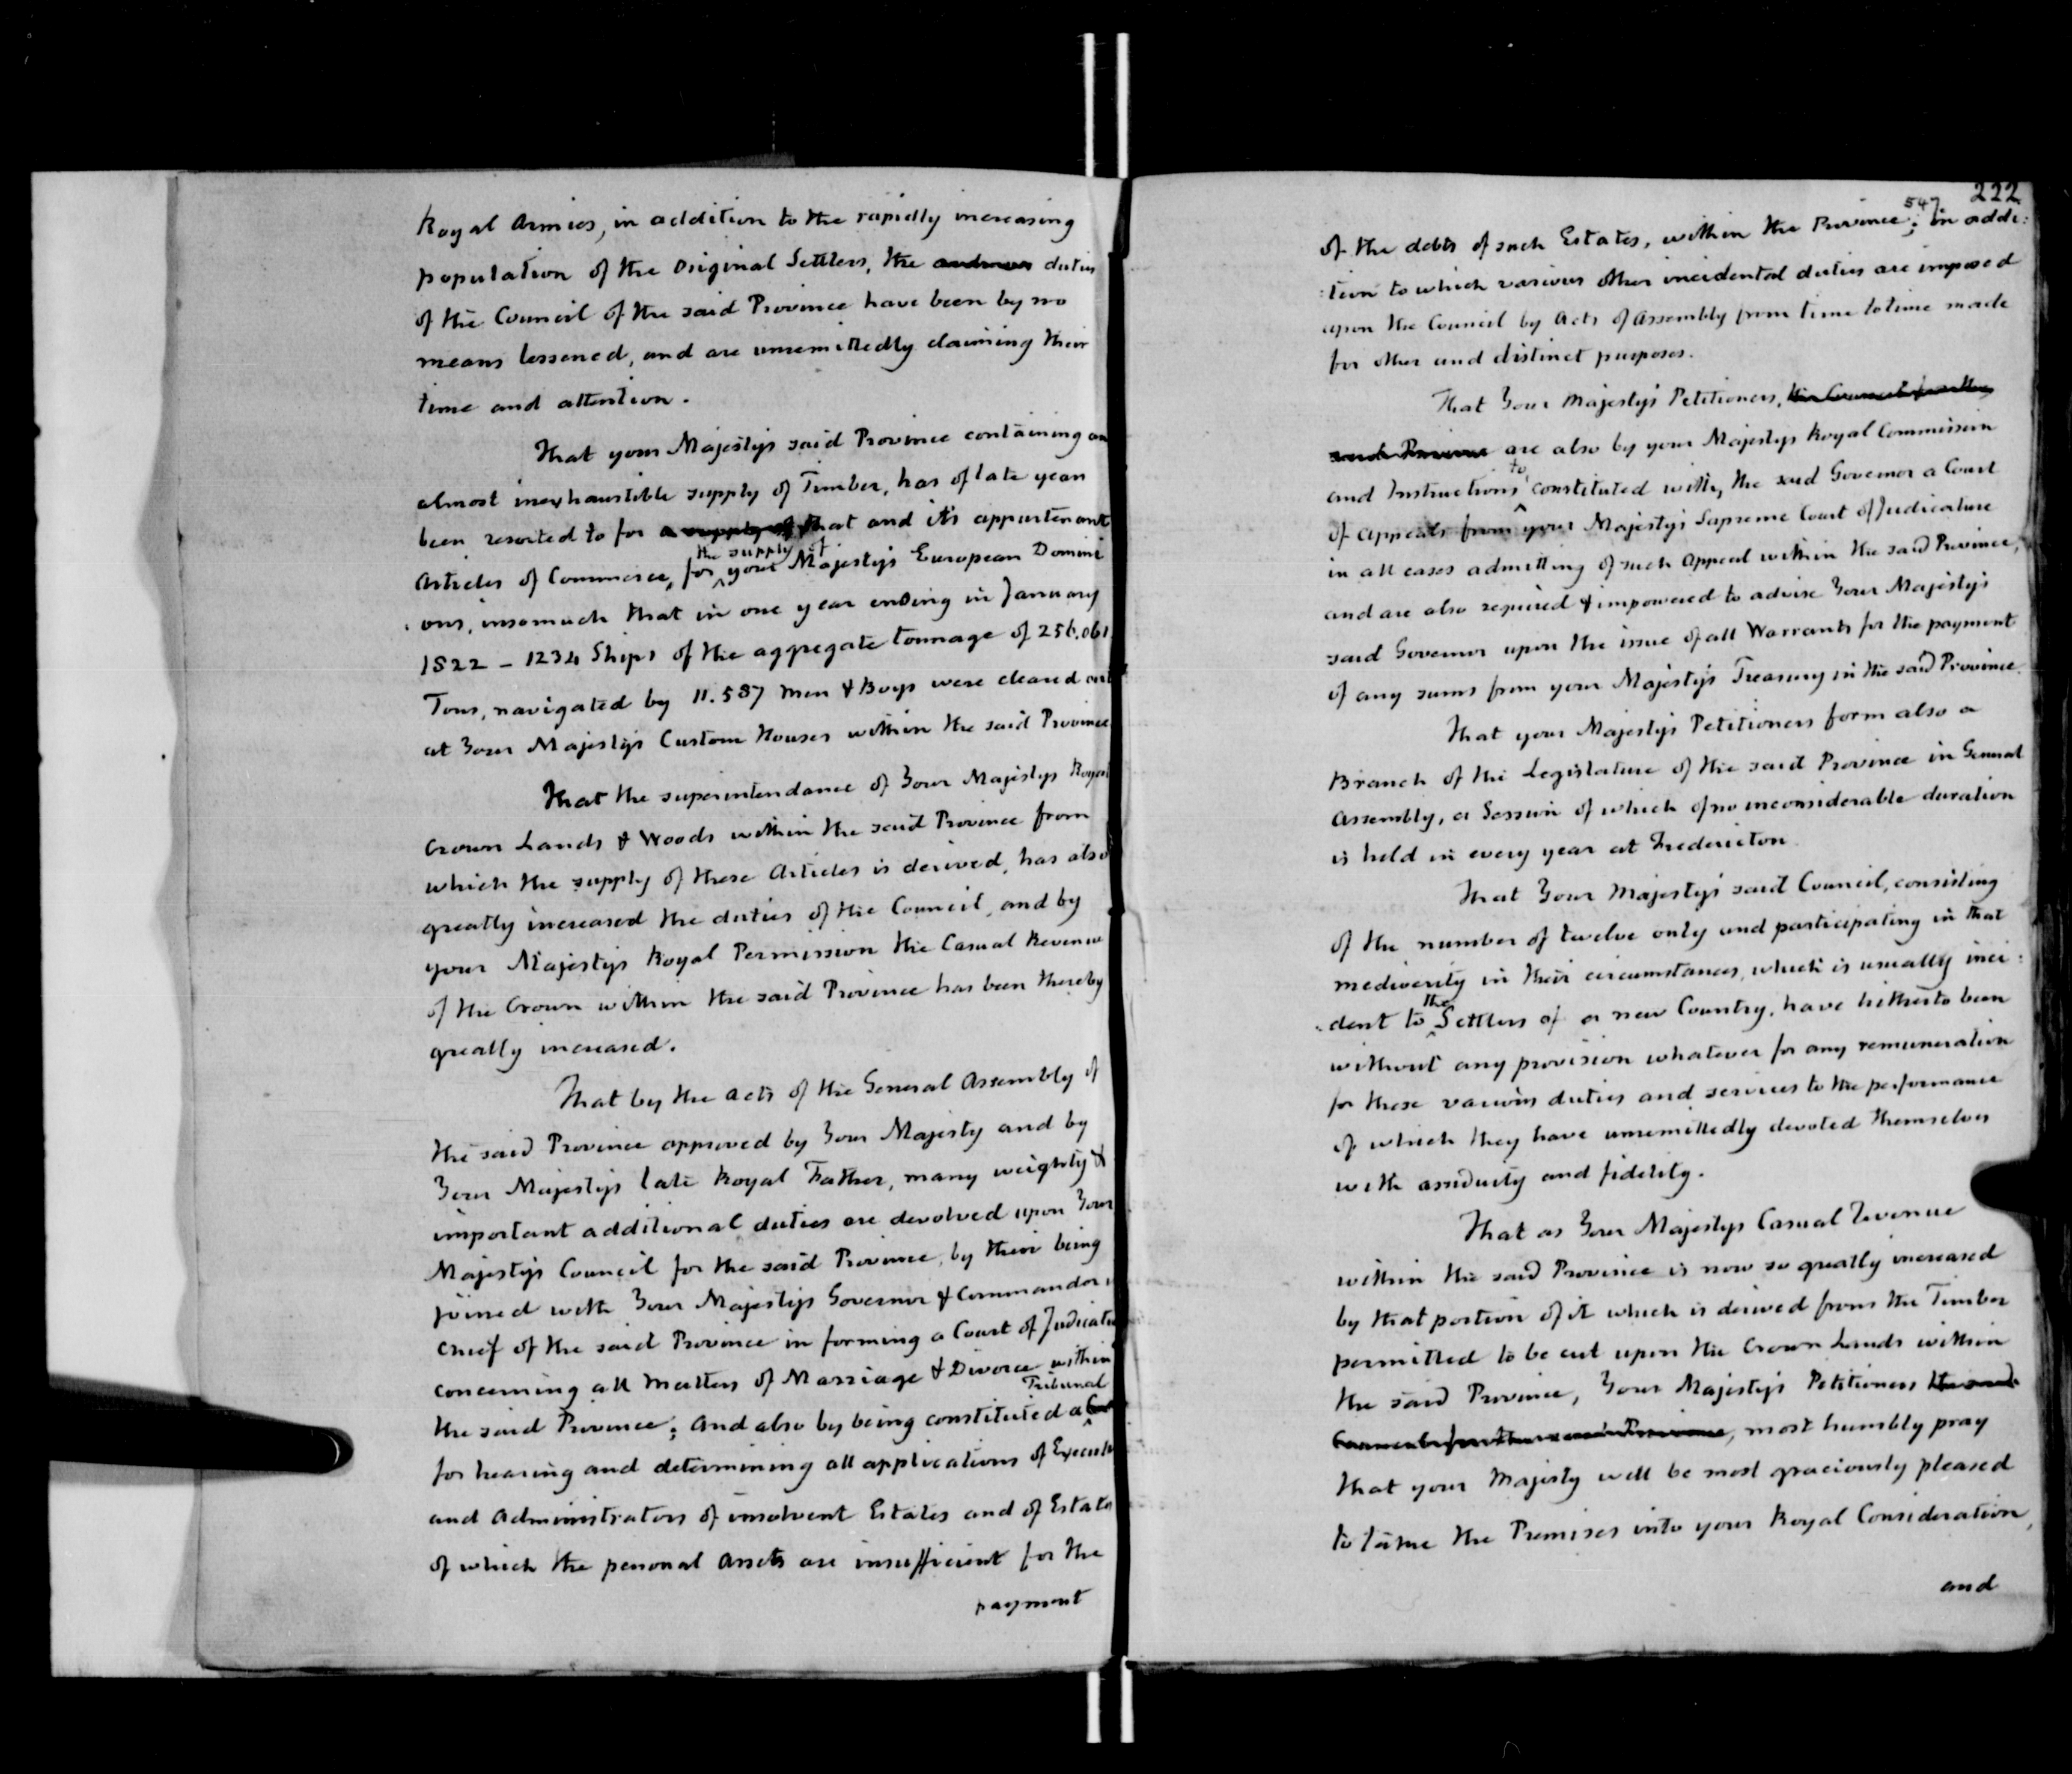 Royal Armies, in addition to the rapidly increasing
population of the Original Settlers, the duties
of the Council of the said Province have been by no
means lessened, and are unremittedly claiming their
time and attention.
That your Majesty's said Province containing an
almost inexhaustible supply of Timber, has of late years
been resorted to for a supply of that and it's appurtenant
Articles of Commerce, for the supply of your Majesty's European Domini
:ons, insomuch that in one year ending in January
1822 – 1234 Ships of the aggregate tonnage of 256.061
Tons, navigated by 11.587 Men & Boys were cleared out
at Your Majesty's Custom Houses within the said Province
That the superintendance of Your Majestys Royal
Crown Lands & Woods within the said Province from
which the supply of these Articles is derived, has also
greatly increased the duties of the Council, and by
your Majestys Royal Permission the Casual Revenue
of the Crown within the said Province has been thereby
greatly increased.
That by the Acts of the General Assembly of
the said Province approved by Your Majesty and by
Your Majestys late Royal Father, many weighty &
important additional duties are devolved upon Your
Majestys Council for the said Province, by their being
joined with Your Majestys Governor & Commander in
Chief of the said Province in forming a Court of Judicatu
concerning all Matters of Marriage & Divorce within
the said Province; and also by being constituted a Tribunal
for hearing and determining all applications of Executo
and Administrators of insolvent Estates and of Estates
of which the personal Assets are insufficient for the
payment
547. 222
of the debts of such Estates, within the Province; in addi:
:tion to which various other incidental duties are imposed
upon the Council by Acts of Assembly from time to time made
for other and distinct purposes.
That Your Majesty's Petitioners, the Council for the
said Province are also by your Majestys Royal Commission
and Instructions constituted with the said Governor a Court
of Appeals from to your Majesty's Supreme Court of Judicature
in all cases admitting of such Appeal within the said Province,
and are also required & impowered to advise Your Majestys
said Governor upon the issue of all Warrants for the payment
of any sums from your Majesty's Treasury in the said Province.
That your Majesty's Petitioners form also a
Branch of the Legislature of the said Province in General
Assembly, a Session of which of no inconsiderable duration
is held in every year at Fredericton
That Your Majesty's said Council, consisting
of the number of twelve only and participating in that
mediocrity in their circumstances, which is usually inci:
:dent to the Settlers of a new Country, have hitherto been
without any provision whatever for any remuneration
for these various duties and services to the performance
of which they have unremittedly devoted themselves
with assiduity and fidelity.
That as Your Majestys Casual Revenue
within the said Province is now so greatly increased
by that portion of it which is derived from the Timber
permitted to be cut upon the Crown Lands within
the said Province, Your Majesty's Petitioners the said
Council for the said Province, most humbly pray
that your Majesty will be most graciously pleased
to take the Premises into your Royal Consideration,
and